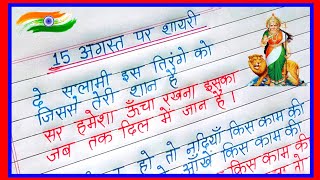 15 अगस्त पर शायरी
दे सलामी इस तिरंगे को
जिससे तेरी शान है
सर हमेशा ऊँचा रखना इसका
जब तक दिल में जान है।
हो तो नदियाँ किस काम की
आँखें किस काम की
किस काम
तो